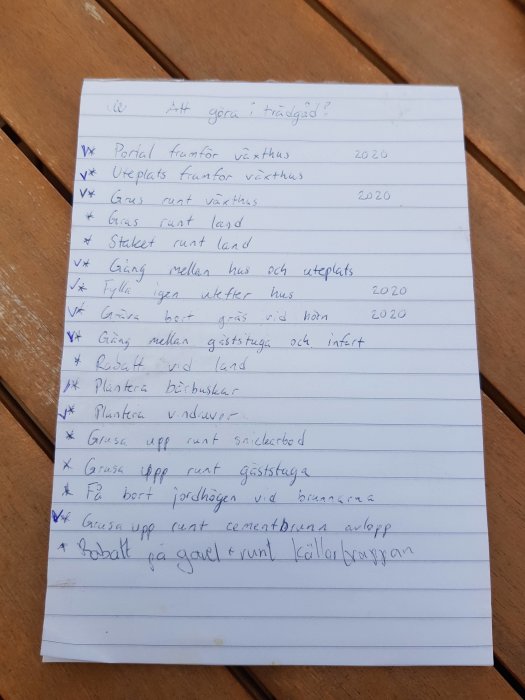 Att göra i trädgåd?
v* Portal framför växthus 2020
v* Uteplats framför växthus
v* Grus runt växthus 2020
* Grus runt land
* Staket runt land
v* Gång mellan hus och uteplats
v* Fylla igen utefter hus 2020
v* Gräva bort gräs vid hörn 2020
v* Gång mellan gäststuga och infart
* Rabatt vid land
* Plantera bärbuskar
v* Plantera vindruvor
* Grusa upp runt snickarbod
* Grusa upp runt gäststuga
* Få bort jordhögen vid brunnarna
v* Grusa upp runt cementbrunn avlopp
* Rabatt på gavel + runt källartrappan